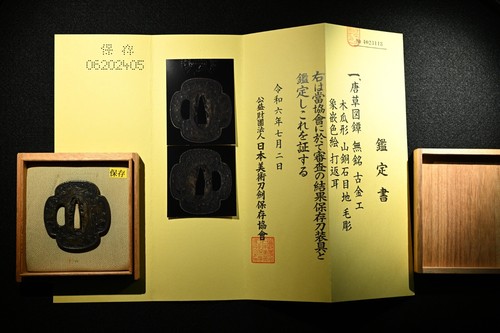 鑑定書
一、唐草図鐔 無銘 古金工
木瓜形 山銅石目地 毛彫
象嵌色絵 打返耳
右は當協會に於て審査の結果保存刀装具と
鑑定しこれを証する
令和六年七月二日
公益財團法人 日本美術刀剣保存協會
保存
06202405
保存